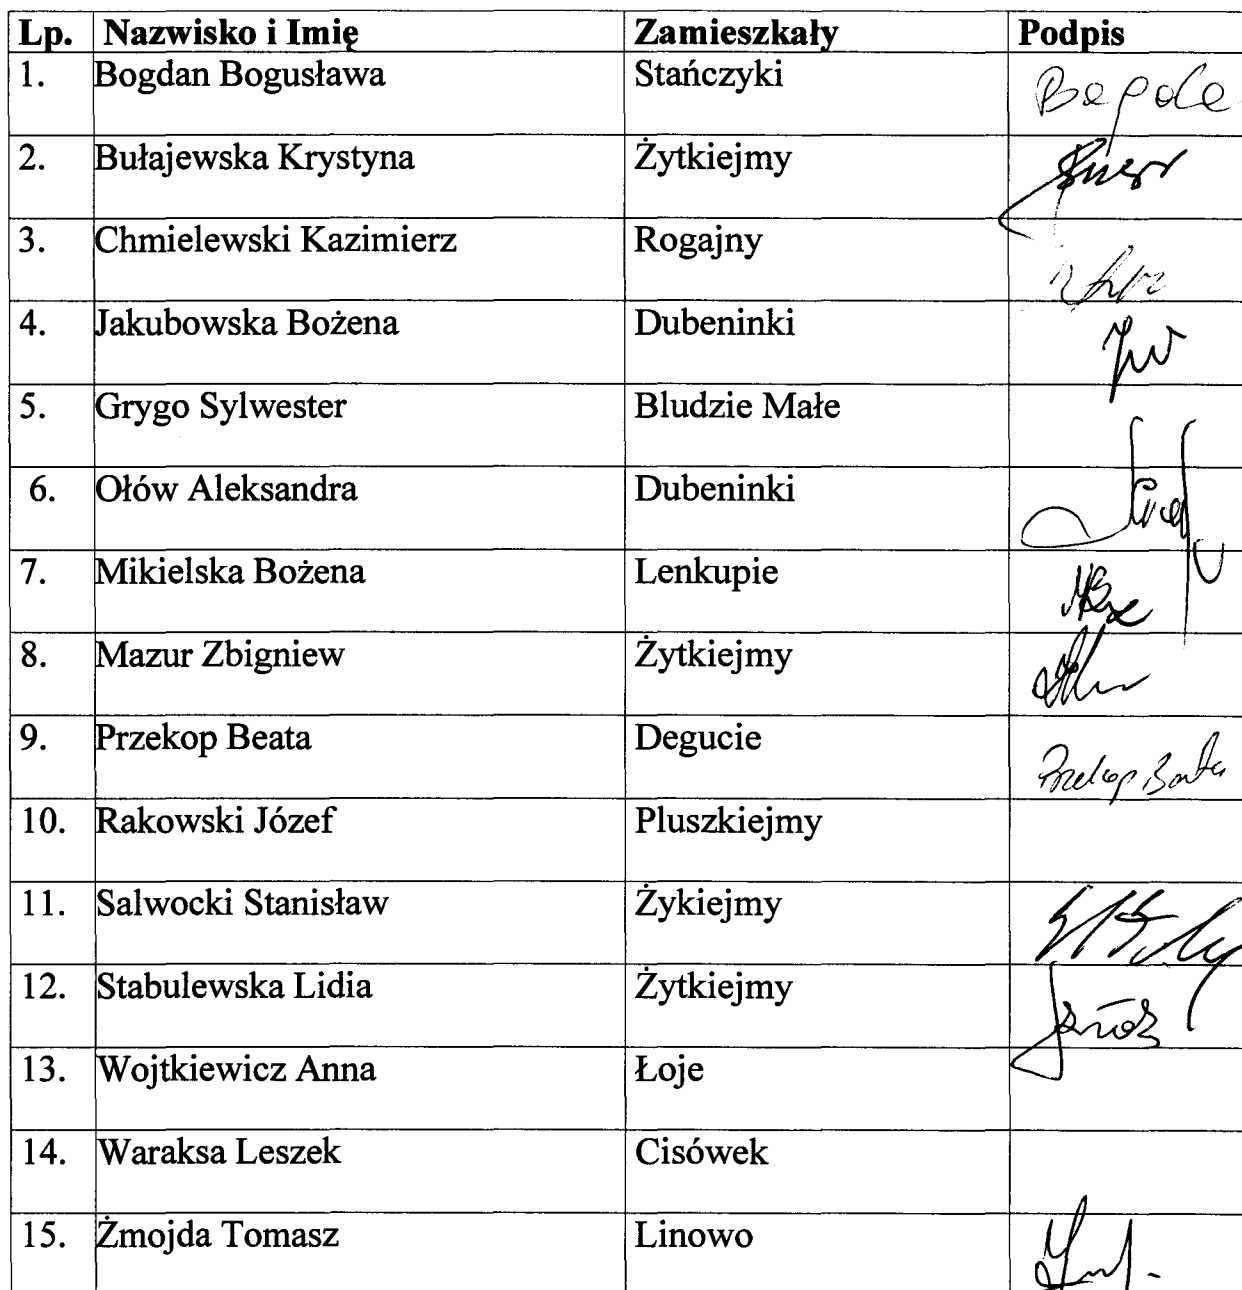 Lp. Nazwisko i Imię Zamieszkały Podpis
1. Bogdan Bogusława Stańczyki
2. Bułajewska Krystyna Żytkiejmy
3. Chmielewski Kazimierz Rogajny
4. Jakubowska Bożena Dubeninki
5. Grygo Sylwester Bludzie Małe
6. Ołów Aleksandra Dubeninki
7. Mikielska Bożena Lenkupie
8. Mazur Zbigniew Żytkiejmy
9. Przekop Beata Degucie Przekop Beata
10. Rakowski Józef Pluszkiejmy
11. Salwocki Stanisław Żykiejmy
12. Stabulewska Lidia Żytkiejmy
13. Wojtkiewicz Anna Łoje
14. Waraksa Leszek Cisówek
15. Żmojda Tomasz Linowo